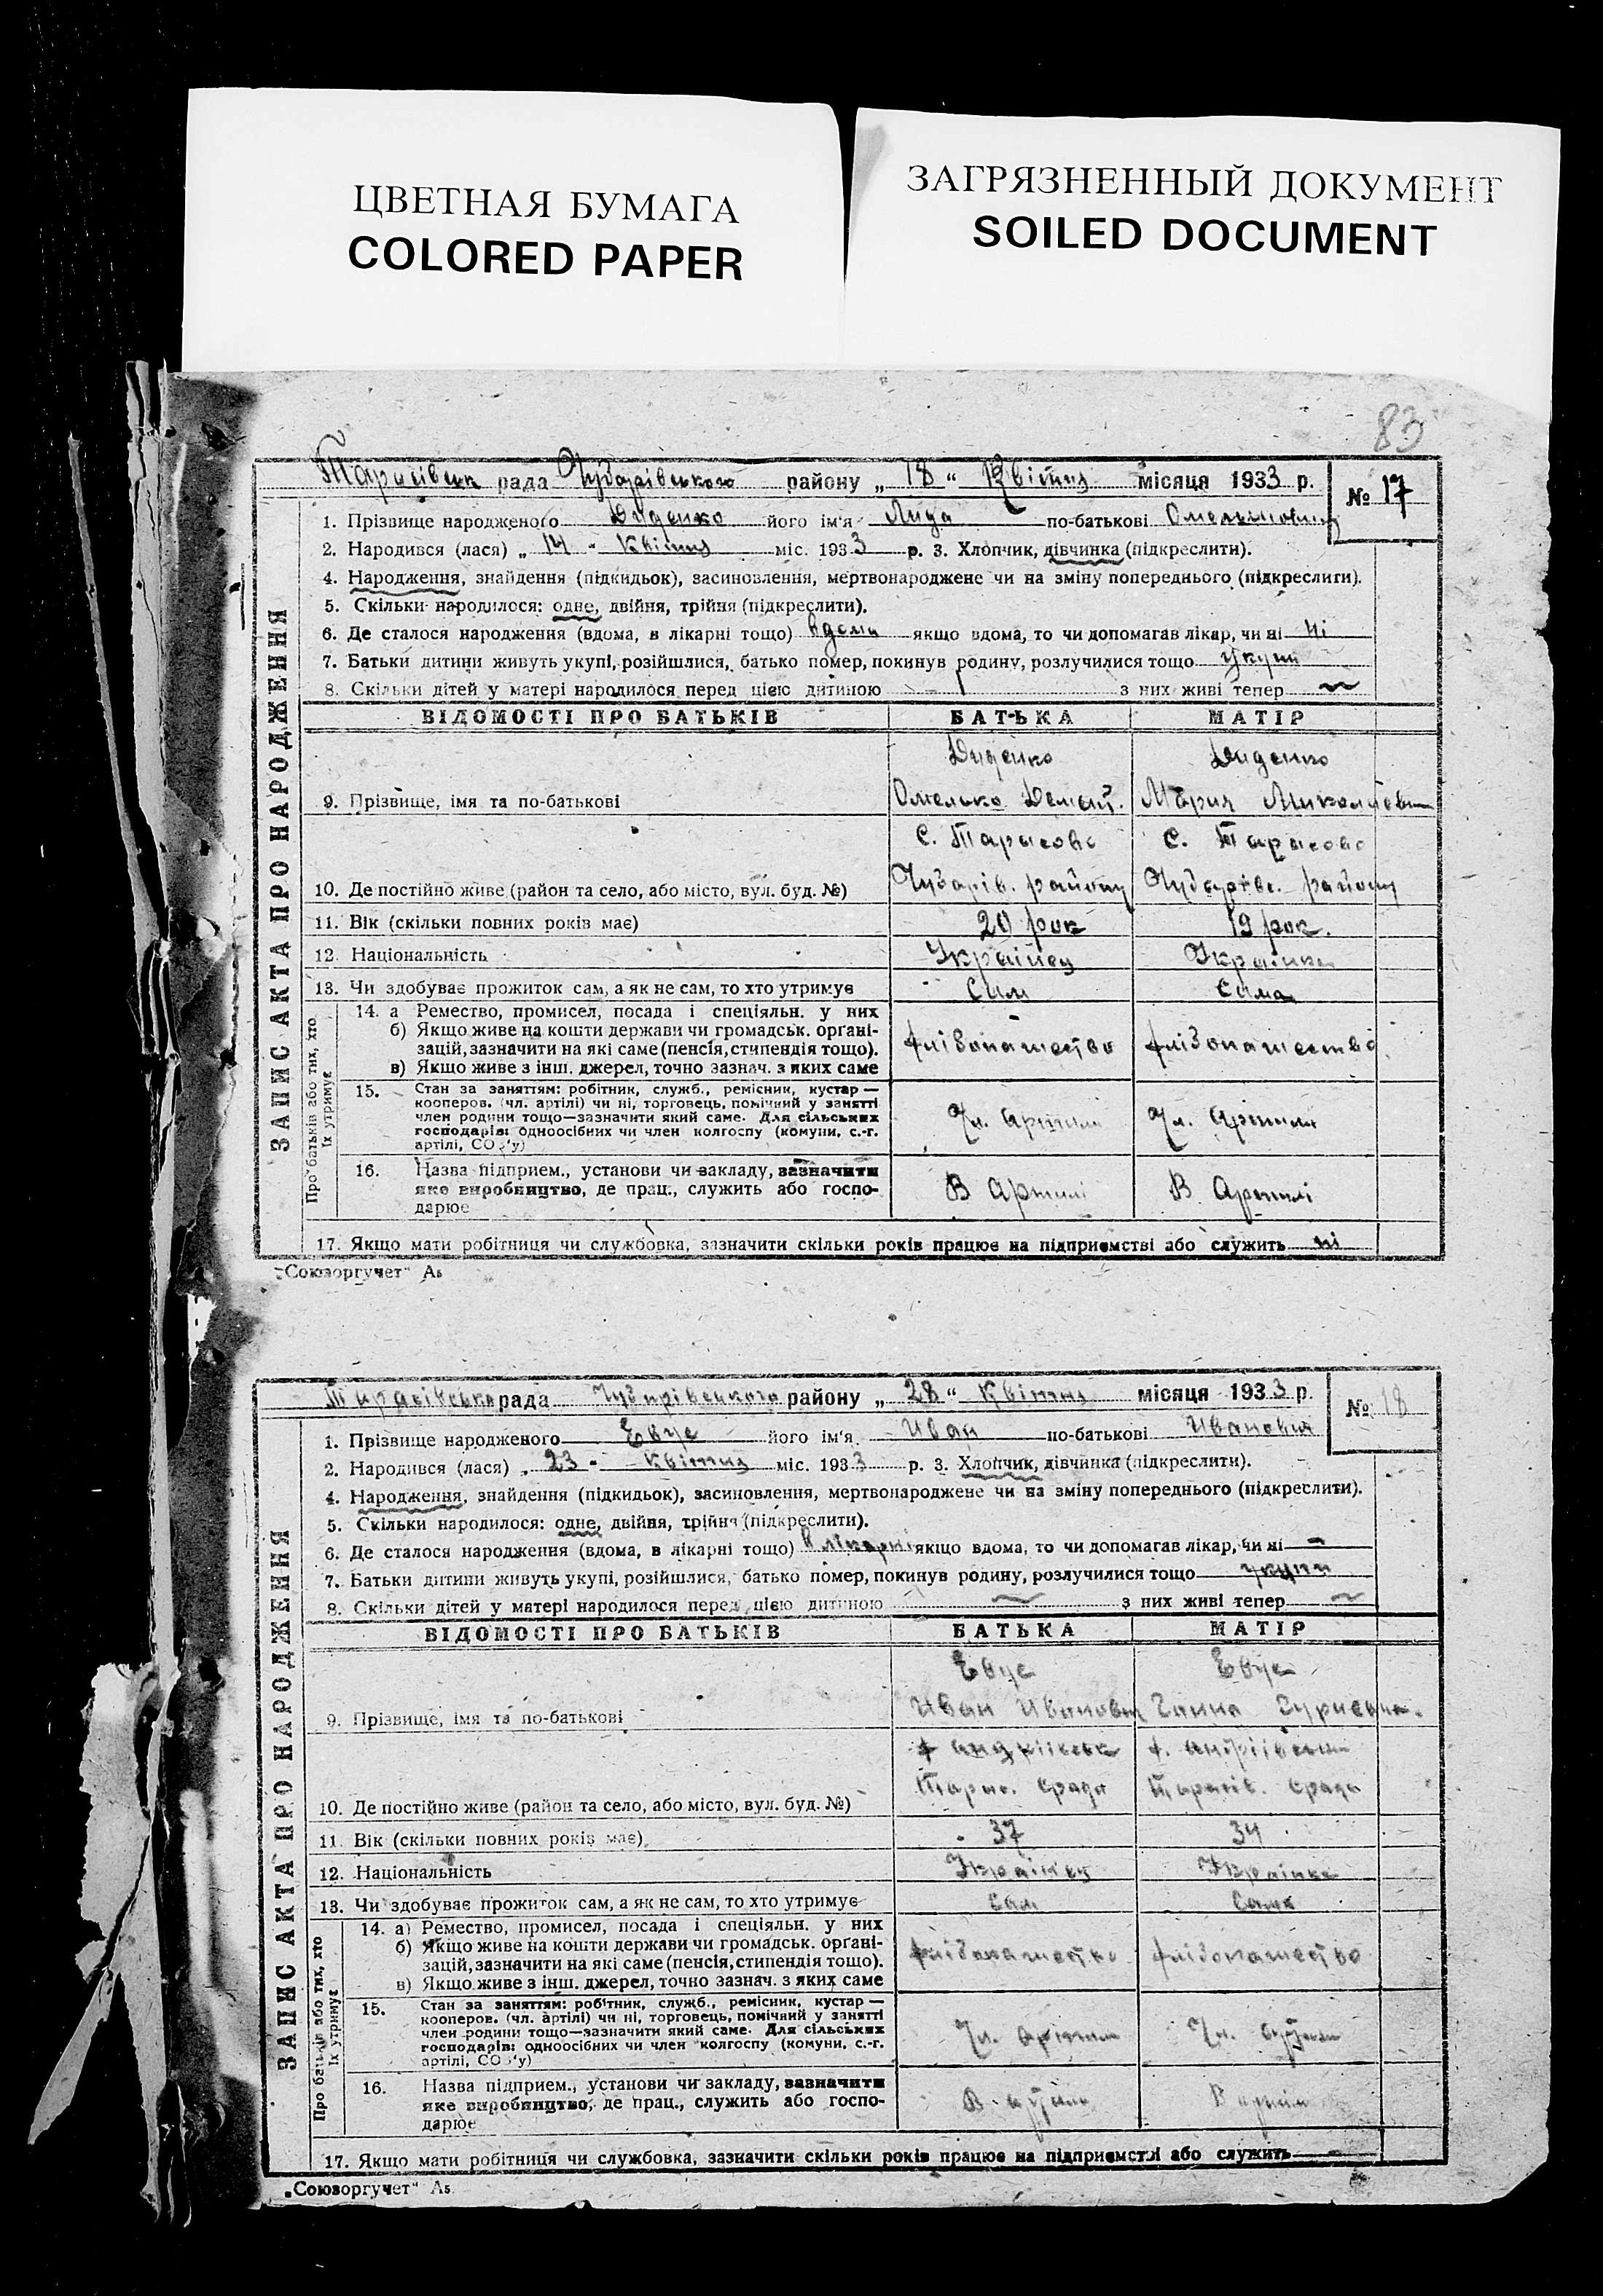 ЦВЕТНАЯ БУМАГА
COLORED PAPER
ЗАГРЯЗНЕННЫЙ ДОКУМЕНТ
SOILED DOCUMENT
83
рада Чубарівського району „ 18 “ Квітня місяця 1933 р. № 17
1. Прізвище народженого Диденко його ім'я Лида по-батькові
2. Народився (лася) „ 14 " Квітня міс. 1933 р. 3. Хлопчик, дівчинка (підкреслити).
4. Народження, знайдення (підкидьок), засиновлення, мертвонароджене чи на зміну попереднього (підкреслити).
5. Скільки народилося: одне, двійня, трійня (підкреслити).
6. Де сталося народження (вдома, в лікарні тощо) вдома якщо вдома, то чи допомагав лікар, чи ні ні
7. Батьки дитини живуть укупі, розійшлися, батько помер, покинув родину, розлучилися тощо укупі
8. Скільки дітей у матері народилося перед цією дитиною з них живі тепер
ЗАПИС АКТА ПРО НАРОДЖЕННЯ
ВІДОМОСТІ ПРО БАТЬКІВ БАТЬКА МАТІР
Диденко Диденко
9. Прізвище, імя та по-батькові Омелько Мария
с. Тарасовс с. Тарасовс
10. Де постійно живе (район та село, або місто, вул. буд. №) Чубарів. району району
11. Вік (скільки повних років має) 20 рок 19 рок.
12. Національність Українец Українка
13. Чи здобуває прожиток сам, а як не сам, то хто утримує Сам Сама
Про батьків або тих, хто їх утримує
14. а Ремество, промисел, посада і спеціяльн. у них
б) Якщо живе на кошти держави чи громадськ. органі-
зацій, зазначити на які саме (пенсія, стипендія тощо).
в) Якщо живе з інш. джерел, точно зазнач. з яких саме
хлібопашество хлібопашество
15. Стан за заняттям: робітник, служб., ремісник, кустар —
кооперов. (чл. артілі) чи ні, торговець, помічний у занятті
член родини тощо—зазначити який саме. Для сільських
господарів: одноосібних чи член колгоспу (комуни, с.-г.
артілі, СОЗ'у)
Чл. Артили Чл. Артили
16. Назва підприєм., установи чи закладу, зазначити
яке виробництво, де прац., служить або госпо-
дарює
В Артилі В Артилі
17. Якщо мати робітниця чи службовка, зазначити скільки років працює на підприємстві або служить ні
„Союзоргучет“ А5
Тарасівська рада Чубарівського району „ 28 “ Квітня місяця 1933 р. № 18
1. Прізвище народженого Евус його ім'я Иван по-батькові Иванович
2. Народився (лася) „ 23 " Квітня міс. 1933 р. 3. Хлопчик, дівчинка (підкреслити).
4. Народження, знайдення (підкидьок), засиновлення, мертвонароджене чи на зміну попереднього (підкреслити).
5. Скільки народилося: одне, двійня, трійня (підкреслити).
6. Де сталося народження (вдома, в лікарні тощо) в лікарні якщо вдома, то чи допомагав лікар, чи ні —
7. Батьки дитини живуть укупі, розійшлися, батько помер, покинув родину, розлучилися тощо укупі
8. Скільки дітей у матері народилося перед цією дитиною з них живі тепер
ЗАПИС АКТА ПРО НАРОДЖЕННЯ
ВІДОМОСТІ ПРО БАТЬКІВ БАТЬКА МАТІР
Евус Евус
9. Прізвище, імя та по-батькові Иван Иванович Ганна
10. Де постійно живе (район та село, або місто, вул. буд. №) Тарас. Срада Тарасів. Срада
11. Вік (скільки повних років має) 37 34
12. Національність Українец Українка
13. Чи здобуває прожиток сам, а як не сам, то хто утримує Сам Сама
Про батьків або тих, хто їх утримує
14. а) Ремество, промисел, посада і спеціяльн. у них
б) Якщо живе на кошти держави чи громадськ. органі-
зацій, зазначити на які саме (пенсія, стипендія тощо).
в) Якщо живе з інш. джерел, точно зазнач. з яких саме
хлібопашество хлібопашество
15. Стан за заняттям: робітник, служб., ремісник, кустар —
кооперов. (чл. артілі) чи ні, торговець, помічний у занятті
член родини тощо—зазначити який саме. Для сільських
господарів: одноосібних чи член колгоспу (комуни, с.-г.
артілі, СОЗ'у)
Чл. Чл.
16. Назва підприєм., установи чи закладу, зазначити
яке виробництво, де прац., служить або госпо-
дарює
17. Якщо мати робітниця чи службовка, зазначити скільки років працює на підприємстві або служить
„Союзоргучет“ А5